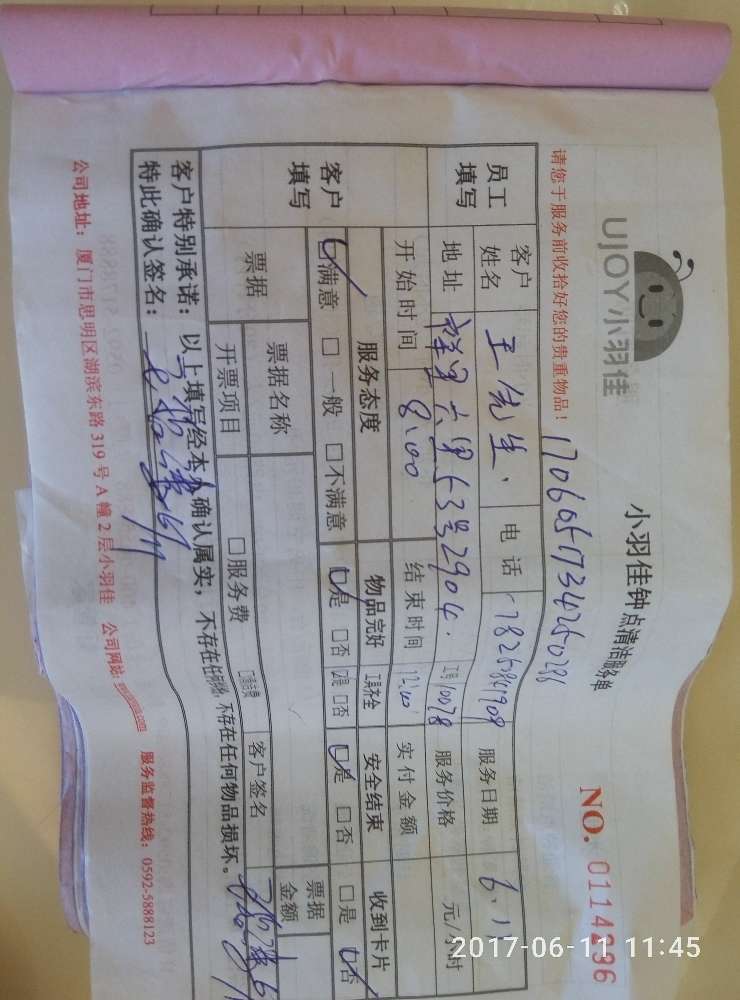 UJOY小羽佳
小羽佳钟点清洁服务单
NO. 0114236
请您于服务前收拾好您的贵重物品!
员工填写
客户姓名 王先生 电话 服务日期 6.11
地址 祥里六里53号2904 工号 10078 服务价格 元/小时
开始时间 8:00 结束时间 12:00 实付金额
客户填写
服务态度 物品完好 工具齐全 安全结束 收到卡片
☑满意 □一般 □不满意 ☑是 □否 ☑是 □否 ☑是 □否 □是 ☑否
票据 票据名称 客户签名 票据金额
开票项目 □服务费
客户特别承诺:以上填写经本人确认属实,不存在任何物品损坏。
特此确认签名:
公司地址:厦门市思明区湖滨东路319号A幢2层小羽佳 公司网站: 服务监督热线:0592-5888123
2017-06-11 11:45